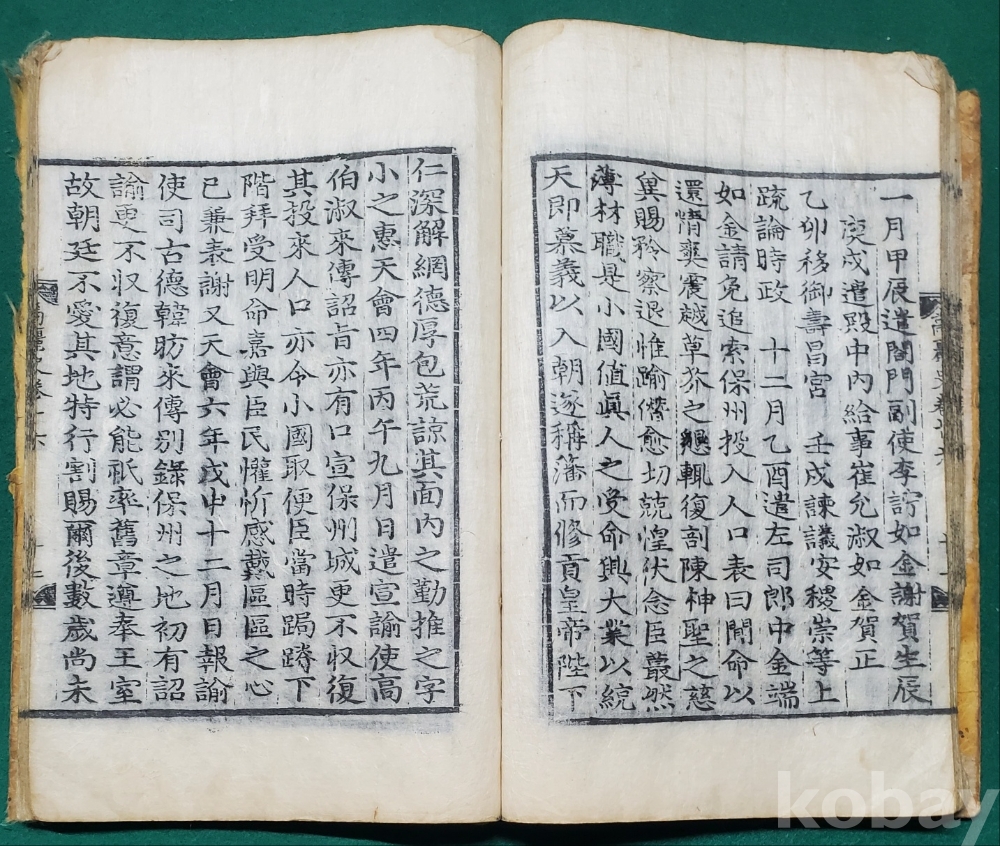 一月甲辰遣閤門副使李謜如金謝賀生辰
庚戌遣殿中內給事崔允淑如金賀正
乙卯移御壽昌宮 壬戌諫議安稷崇等上
疏論時政 十二月乙酉遣左司郎中金端
如金請免追索保州投入人口表曰聞命以
還情爽震越草芥之懇輒復剖陳神聖之慈
冀賜矜察退惟踰僭愈切兢惶伏念臣蕞然
薄材職是小國値眞人之受命興大業以統
天即慕義以入朝遂稱藩而修貢皇帝陛下
仁深解網德厚包荒諒其面內之勤推之字
小之惠天會四年丙午九月日遣宣諭使高
伯淑來傳詔旨亦有口宣保州城更不収復
其投來人口亦令小國取便臣當時跼蹐下
階拜受明命嘉與臣民懽忻感戴區區之心
已兼表謝又天會六年戊申十二月日報諭
使司古德韓昉來傳別錄保州之地初有詔
諭更不収復意謂必能祇率舊章遵奉王室
故朝廷不愛其地特行割賜爾後數歲尚未
kobay